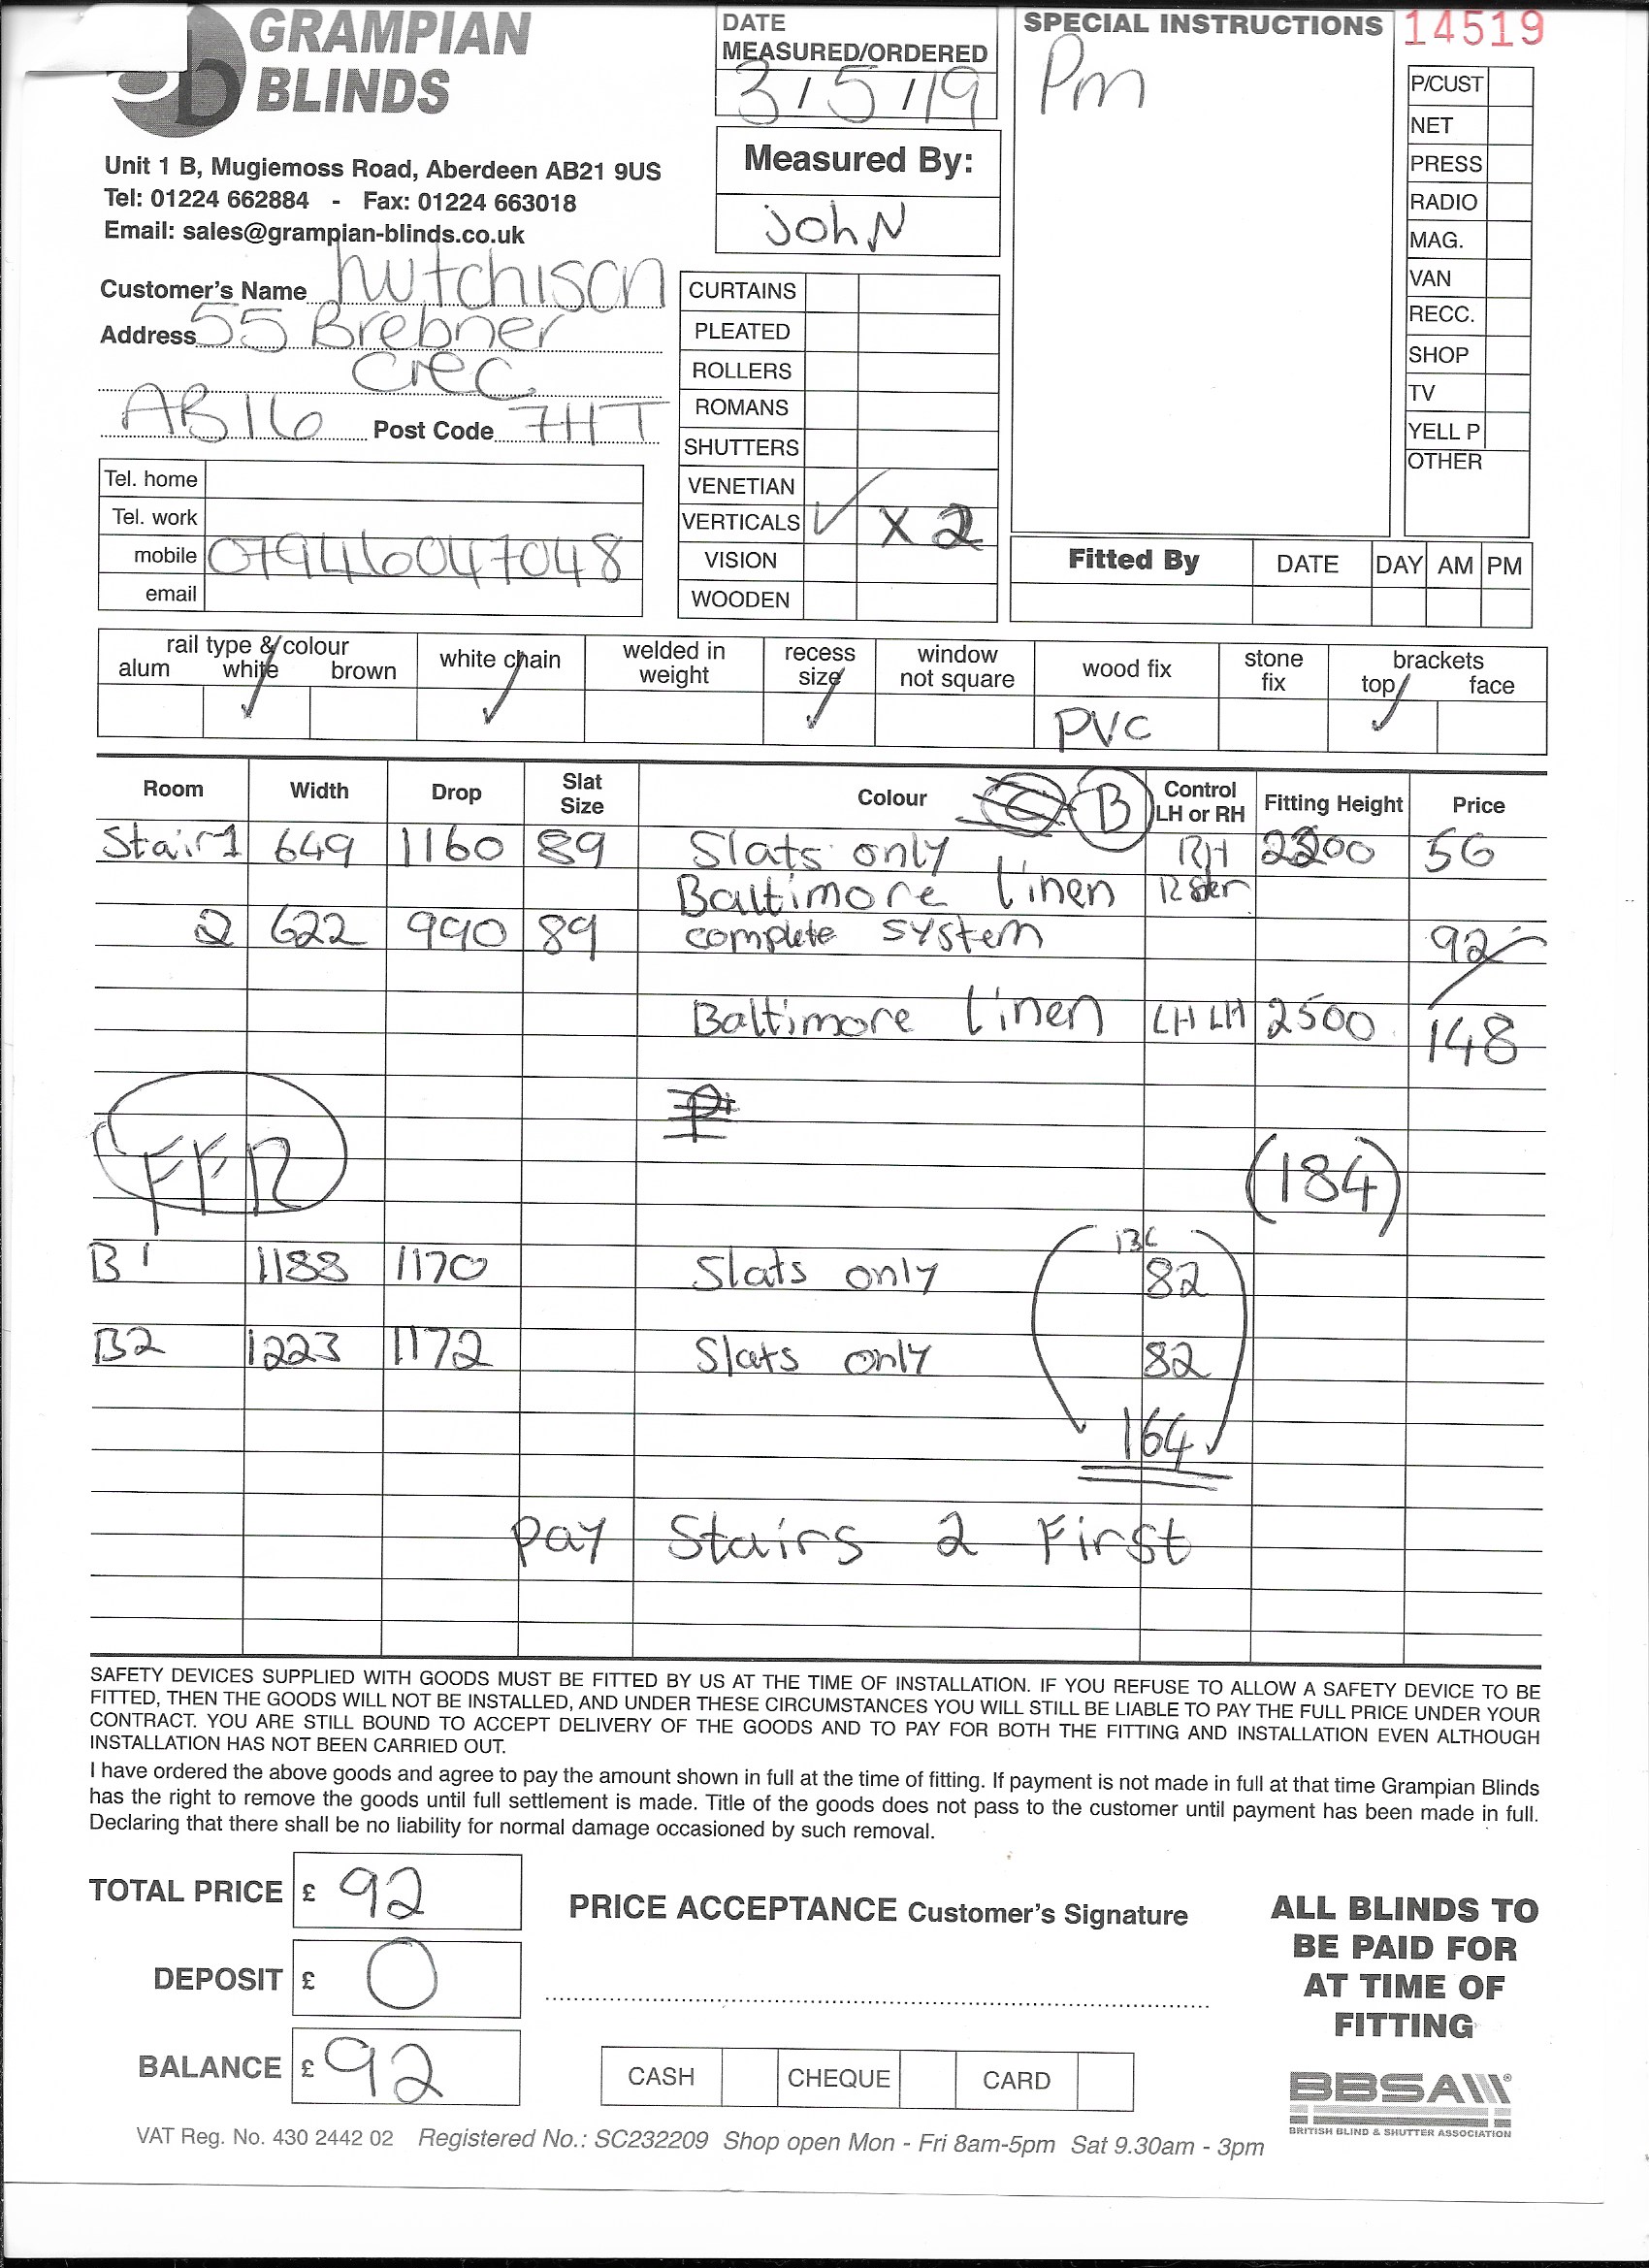 GRAMPIAN
BLINDS
Unit 1 B, Mugiemoss Road, Aberdeen AB21 9US
Tel: 01224 662884 - Fax: 01224 663018
Email: sales@grampian-blinds.co.uk
Customer's Name Hutchison
Address 55 Brebner
Crec.
AB16 Post Code 7HT
Tel. home
Tel. work
mobile 07946047048
email
DATE
MEASURED/ORDERED
3/5/19
Measured By:
John
CURTAINS
PLEATED
ROLLERS
ROMANS
SHUTTERS
VENETIAN
VERTICALS ✓ X 2
VISION
WOODEN
SPECIAL INSTRUCTIONS
Pm
14519
P/CUST
NET
PRESS
RADIO
MAG.
VAN
RECC.
SHOP
TV
YELL P
OTHER
Fitted By DATE DAY AM PM
rail type & colour
alum white ✓ brown
white chain ✓
welded in weight
recess size ✓
window not square
wood fix PVC
stone fix
brackets
top ✓ face
Room Width Drop Slat Size Colour B Control LH or RH Fitting Height Price
Stair 1 649 1160 89 Slats only RH 2200 56
Baltimore Linen
2 622 990 89 complete system 92
Baltimore Linen LH LH 2500 148
FFR
(184)
B1 1188 1170 Slats only 82
B2 1223 1172 Slats only 82
164
Pay Stairs 2 First
SAFETY DEVICES SUPPLIED WITH GOODS MUST BE FITTED BY US AT THE TIME OF INSTALLATION. IF YOU REFUSE TO ALLOW A SAFETY DEVICE TO BE
FITTED, THEN THE GOODS WILL NOT BE INSTALLED, AND UNDER THESE CIRCUMSTANCES YOU WILL STILL BE LIABLE TO PAY THE FULL PRICE UNDER YOUR
CONTRACT. YOU ARE STILL BOUND TO ACCEPT DELIVERY OF THE GOODS AND TO PAY FOR BOTH THE FITTING AND INSTALLATION EVEN ALTHOUGH
INSTALLATION HAS NOT BEEN CARRIED OUT.
I have ordered the above goods and agree to pay the amount shown in full at the time of fitting. If payment is not made in full at that time Grampian Blinds
has the right to remove the goods until full settlement is made. Title of the goods does not pass to the customer until payment has been made in full.
Declaring that there shall be no liability for normal damage occasioned by such removal.
TOTAL PRICE £ 92
DEPOSIT £ 0
BALANCE £ 92
PRICE ACCEPTANCE Customer's Signature
CASH CHEQUE CARD
ALL BLINDS TO
BE PAID FOR
AT TIME OF
FITTING
BBSA
BRITISH BLIND & SHUTTER ASSOCIATION
VAT Reg. No. 430 2442 02 Registered No.: SC232209 Shop open Mon - Fri 8am-5pm Sat 9.30am - 3pm